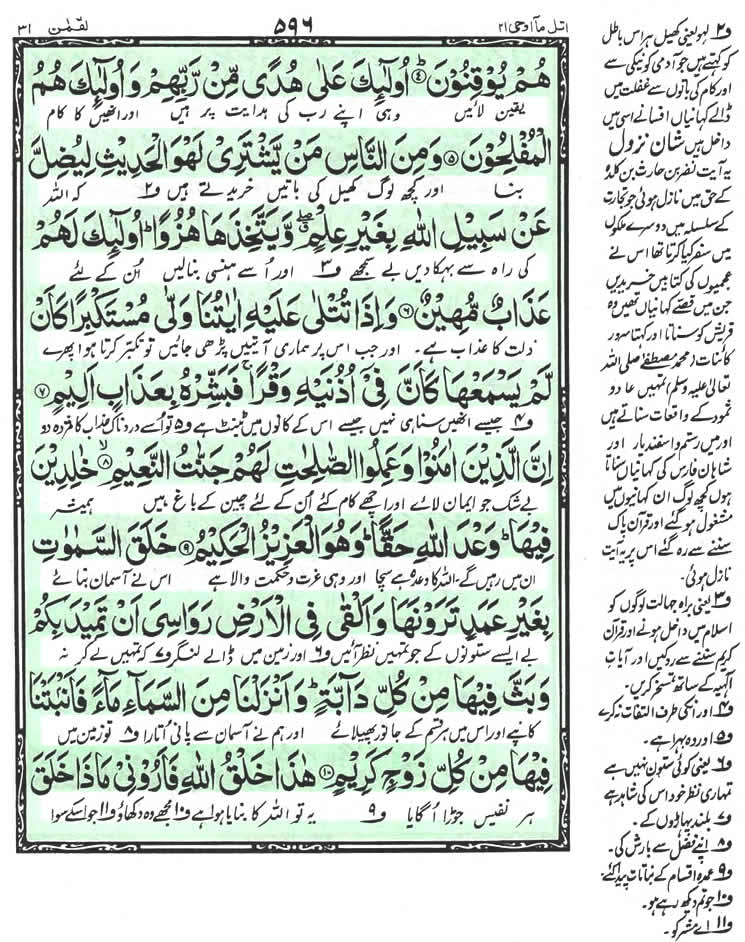 اتل ماۤ اوحی ۲۱
۵۹۶
لقمٰن ۳۱
هُمْ يُوْقِنُوْنَ ؕ﴿۴﴾ اُولٰٓئِكَ عَلٰى هُدًى مِّنْ رَّبِّهِمْ وَ اُولٰٓئِكَ هُمُ
یقین لائیں وہی اپنے رب کی ہدایت پر ہیں اور انھیں کا کام
الْمُفْلِحُوْنَ ﴿۵﴾ وَ مِنَ النَّاسِ مَنْ يَّشْتَرِيْ لَهْوَ الْحَدِيْثِ لِيُضِلَّ
بنا اور کچھ لوگ کھیل کی باتیں خریدتے ہیں و۲ کہ اللہ
عَنْ سَبِيْلِ اللّٰهِ بِغَيْرِ عِلْمٍ ۖۗ وَّ يَتَّخِذَهَا هُزُوًا ؕ اُولٰٓئِكَ لَهُمْ
کی راہ سے بہکا دیں بے سمجھے و۳ اور اُسے ہنسی بنالیں اُن کے لئے
عَذَابٌ مُّهِيْنٌ ﴿۶﴾ وَ اِذَا تُتْلٰى عَلَيْهِ اٰيٰتُنَا وَلّٰى مُسْتَكْبِرًا كَاَنْ
ذلت کا عذاب ہے۔ اور جب اس پر ہماری آیتیں پڑھی جائیں تو تکبر کرتا ہوا پھرے
لَّمْ يَسْمَعْهَا كَاَنَّ فِيْۤ اُذُنَيْهِ وَقْرًا ۚ فَبَشِّرْهُ بِعَذَابٍ اَلِيْمٍ ﴿۷﴾
و۴ جیسے انھیں سنا ہی نہیں جیسے اس کے کانوں میں ٹینٹ ہے و۵ تو اُسے دردناک عذاب کا مژدہ دو
اِنَّ الَّذِيْنَ اٰمَنُوْا وَ عَمِلُوا الصّٰلِحٰتِ لَهُمْ جَنّٰتُ النَّعِيْمِ ۙ﴿۸﴾ خٰلِدِيْنَ
بے شک جو ایمان لائے اور اچھے کام کئے اُن کے لئے چین کے باغ ہیں ہمیشہ
فِيْهَا ؕ وَعْدَ اللّٰهِ حَقًّا ؕ وَ هُوَ الْعَزِيْزُ الْحَكِيْمُ ﴿۹﴾ خَلَقَ السَّمٰوٰتِ
ان میں رہیں گے۔ اللہ کا وعدہ ہے سچا اور وہی عزت و حکمت والا ہے اس نے آسمان بنائے
بِغَيْرِ عَمَدٍ تَرَوْنَهَا وَ اَلْقٰى فِي الْاَرْضِ رَوَاسِيَ اَنْ تَمِيْدَ بِكُمْ
بے ایسے ستونوں کے جو تمہیں نظر آئیں و۶ اور زمین میں ڈالے لنگر و۷ کہ تمہیں لے کر نہ
وَ بَثَّ فِيْهَا مِنْ كُلِّ دَآبَّةٍ ؕ وَ اَنْزَلْنَا مِنَ السَّمَآءِ مَآءً فَاَنْۢبَتْنَا
کانپے اور اس میں ہر قسم کے جانور پھیلائے اور ہم نے آسمان سے پانی اُتارا و۸ تو زمین میں
فِيْهَا مِنْ كُلِّ زَوْجٍ كَرِيْمٍ ﴿۱۰﴾ هٰذَا خَلْقُ اللّٰهِ فَاَرُوْنِيْ مَا ذَا خَلَقَ
ہر نفیس جوڑا اُگایا و۹ یہ تو اللہ کا بنایا ہوا ہے و۱۰ مجھے وہ دکھاؤ و۱۱ جو اسکے سوا
و۲ لہو یعنی کھیل ہر اس باطل
کو کہتے ہیں جو آدمی کو نیکی سے
اور کام کی باتوں سے غفلت میں
ڈالے کہانیاں افسانے اسی میں
داخل ہیں شان نزول
یہ آیت نضر بن حارث بن کلدہ
کے حق میں نازل ہوئی جو تجارت
کے سلسلہ میں دوسرے ملکوں
میں سفر کیا کرتا تھا اس نے
عجمیوں کی کتابیں خریدیں
جن میں قصّے کہانیاں تھیں وہ
قریش کو سناتا اور کہتا سرور
کائنات (محمد مصطفےٰ صلی اللہ
تعالٰی علیہ وسلم) تمہیں عاد و
ثمود کے واقعات سناتے ہیں
اور میں رستم و اسفندیار اور
شاہان فارس کی کہانیاں سناتا
ہوں کچھ لوگ ان کہانیوں میں
مشغول ہو گئے اور قرآن پاک
سننے سے رہ گئے اس پر یہ آیت
نازل ہوئی۔
و۳ یعنی براہِ جہالت لوگوں کو
اسلام میں داخل ہونے اور قرآن
کریم سننے سے روکیں اور آیات
الٰہیہ کے ساتھ تمسخر کریں۔
و۴ اور انکی طرف التفات نہ کرے
و۵ اور وہ بہرا ہے۔
و۶ یعنی کوئی ستون نہیں ہے
تمہاری نظر خود اس کی شاہد ہے
و۷ بلند پہاڑوں کے۔
و۸ اپنے فضل سے بارش کی۔
و۹ عمدہ اقسام کے نباتات پیدا کئے۔
و۱۰ جو تم دیکھ رہے ہو۔
و۱۱ اے مشرکو۔